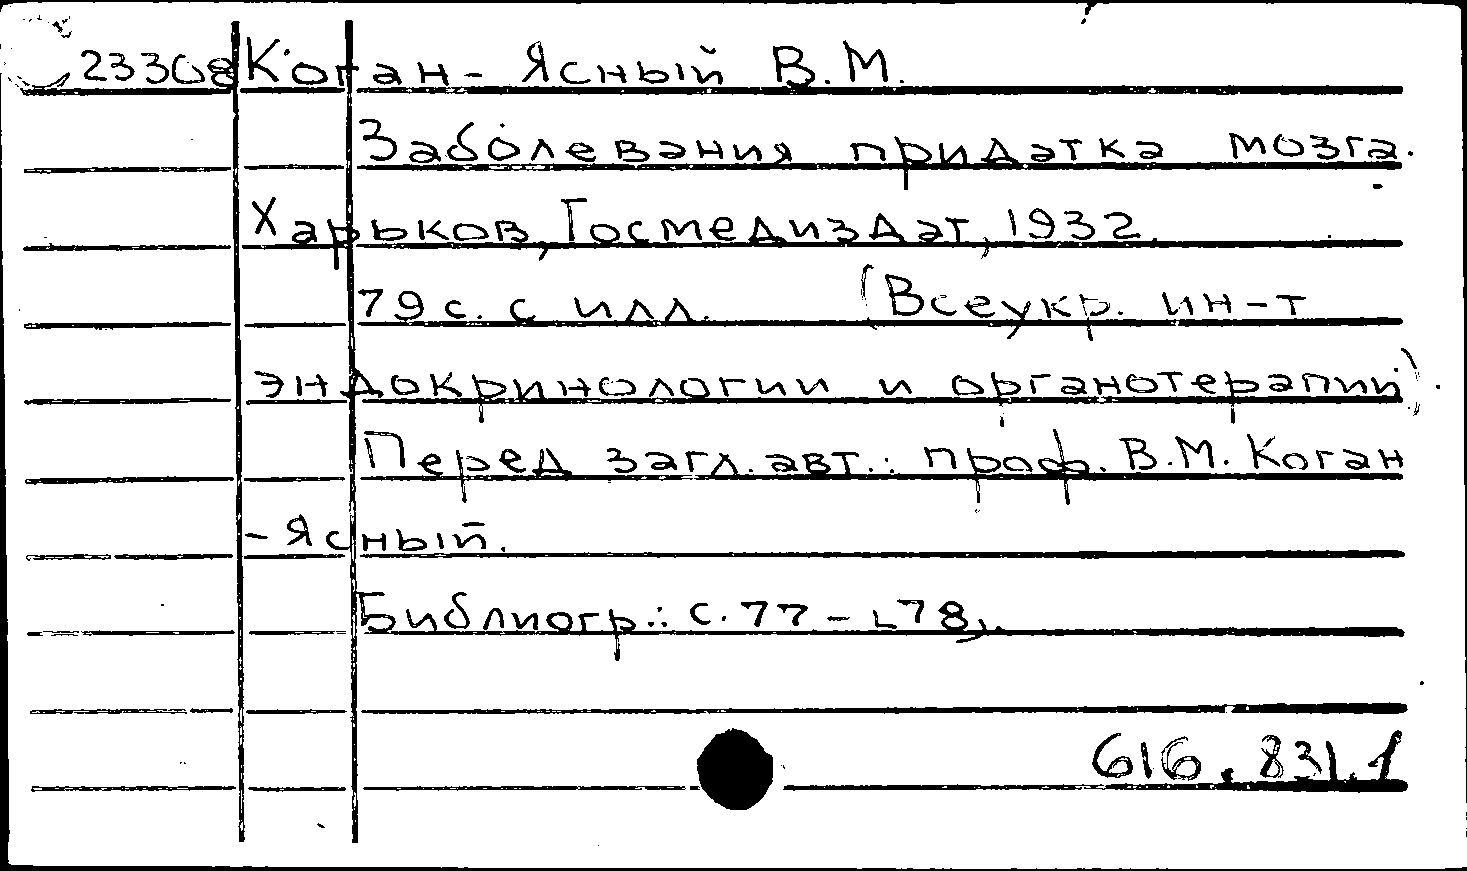 23308 Коган-Ясный В.М.
Заболевания придатка мозга.
Харьков, Госмедиздат, 1932.
79 с. с илл. (Всеукр. ин-т
эндокринологии и органотерапии).
Перед загл. авт.: проф. В.М. Коган
-Ясный.
Библиогр.: с. 77-[78].
616.831.1